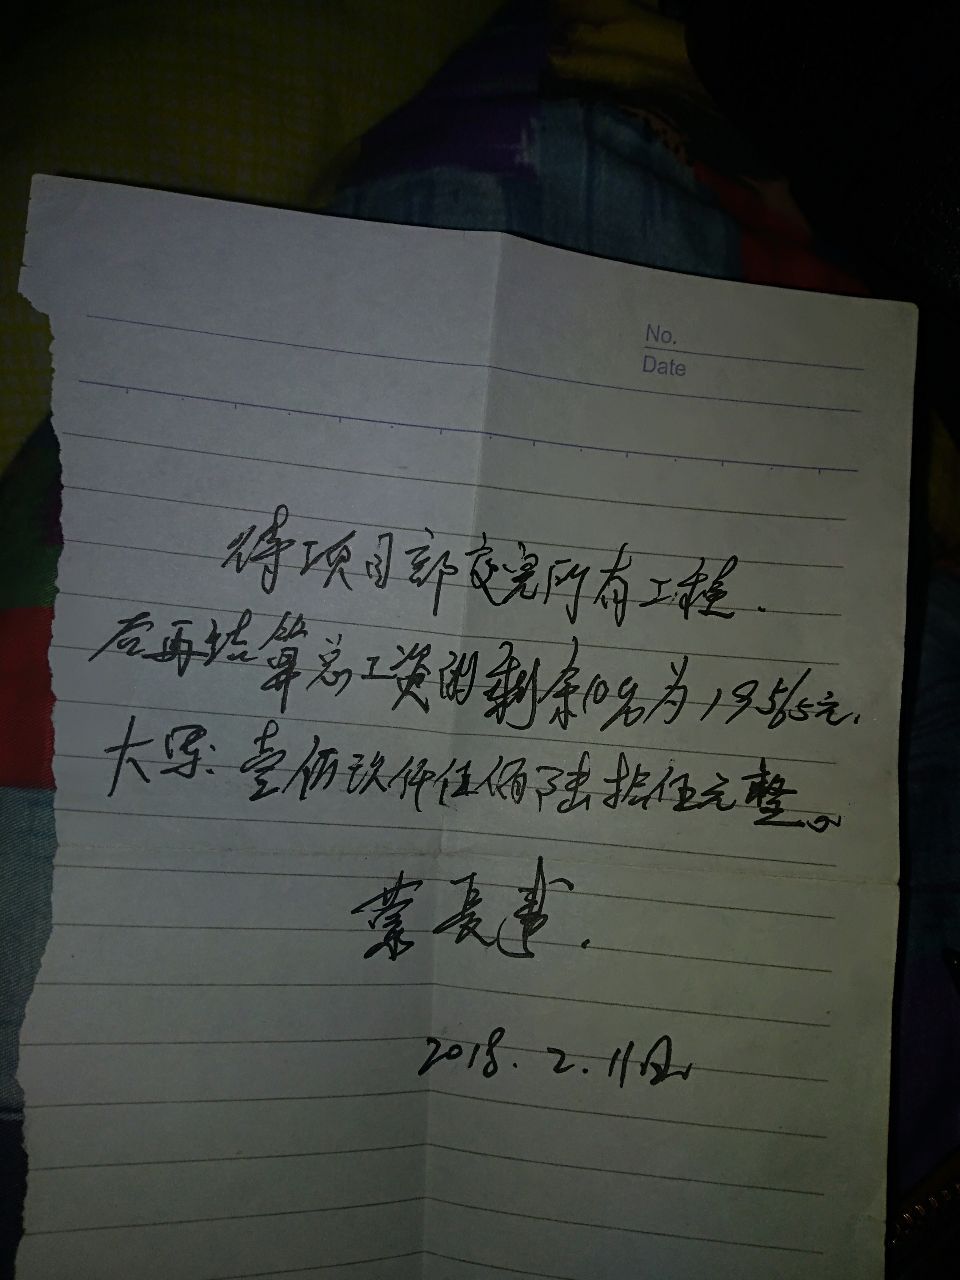 No.
Date
待项目部交完所有工程.
后再结算总工资的剩余10%为19565元.
大写: 壹佰玖仟伍佰陆拾伍元整。
蒙長
2018.2.11日